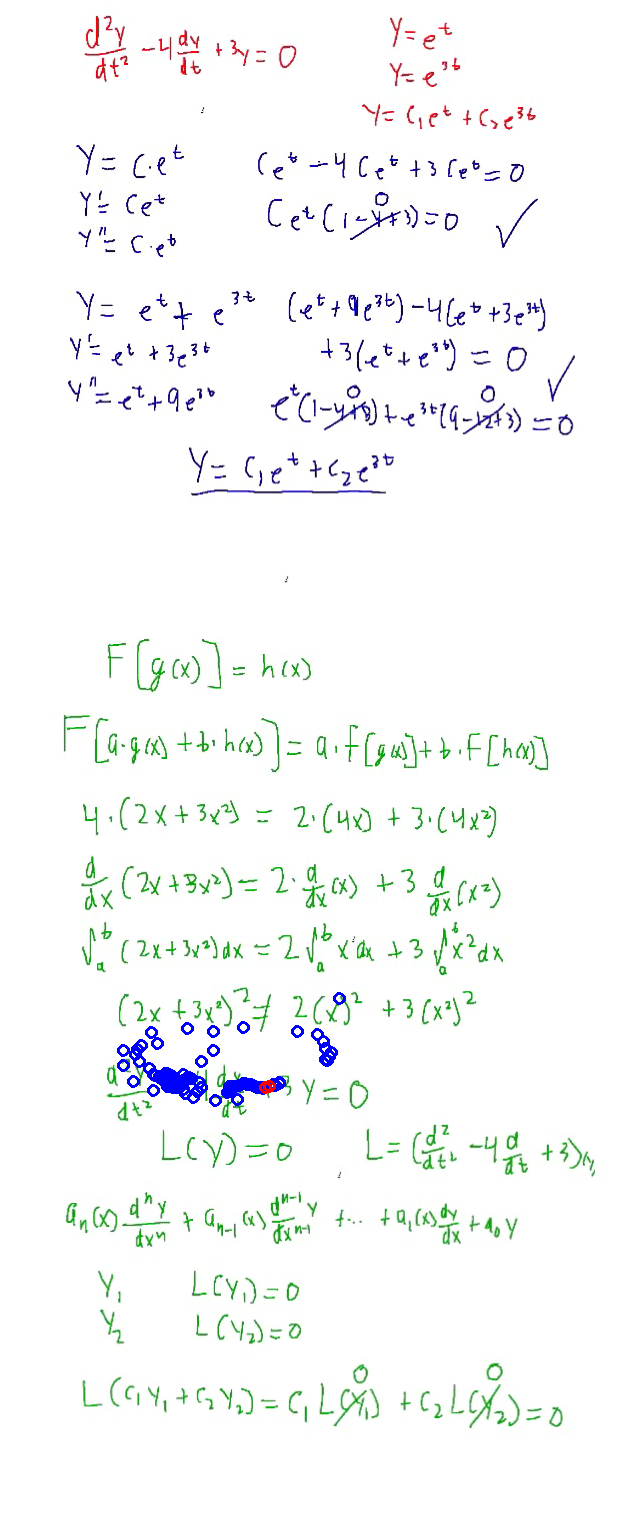 d²y/dt² - 4 dy/dt + 3y = 0
Y = e^t
Y = e^3t
Y = C₁e^t + C₂e^3t
Y = C·e^t
Y' = Ce^t
Y'' = C·e^t
Ce^t - 4Ce^t + 3Ce^t = 0
Ce^t(1-4+3) = 0 ✓
0
Y = e^t + e^3t
Y' = e^t + 3e^3t
Y'' = e^t + 9e^3t
(e^t + 9e^3t) - 4(e^t + 3e^3t)
+3(e^t + e^3t) = 0 ✓
0 0
e^t(1-4+3) + e^3t(9-12+3) = 0
Y = C₁e^t + C₂e^3t
F[g(x)] = h(x)
F[a·g(x) + b·h(x)] = a·F[g(x)] + b·F[h(x)]
4·(2x + 3x²) = 2·(4x) + 3·(4x²)
d/dx (2x + 3x²) = 2·d/dx (x) + 3 d/dx (x²)
∫ₐᵇ (2x + 3x²)dx = 2∫ₐᵇ x dx + 3∫ₐᵇ x² dx
(2x + 3x²)² ≠ 2(x)² + 3(x²)²
d²y/dt² 4 dy/dt 3 Y = 0
L(Y) = 0 L = (d²/dt² - 4 d/dt + 3)
aₙ(x) dⁿy/dxⁿ + aₙ₋₁(x) dⁿ⁻¹y/dxⁿ⁻¹ + ... + a₁(x) dy/dx + a₀Y
Y₁ L(Y₁) = 0
Y₂ L(Y₂) = 0
0 0
L(C₁Y₁ + C₂Y₂) = C₁L(Y₁) + C₂L(Y₂) = 0